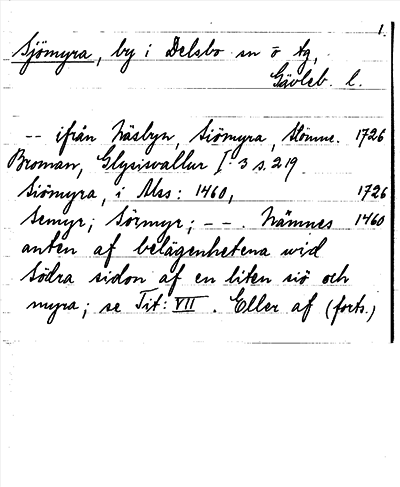 1.
Sjömyra, by i Delsbo sn o tg,
Gävleb. l.
-- ifrån Näsbyn, Siömyra, Stömne. 1726
Broman, Glysisvallur I. 3 s. 219
Siömyra, i Alss: 1460, 1726
Semyr; Sörmyr; - - . Nämnes 1460
anten af belägenhetena wid
södra sidon af en liten siö och
myra; se Tit: VII . Eller af (forts.)